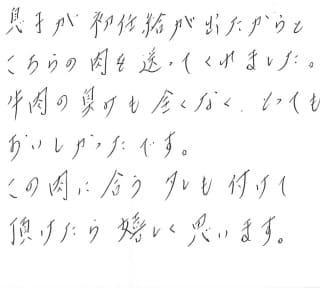 息子が初任給が出たからと
こちらの肉を送ってくれました。
牛肉の臭みも全くなく、とても
おいしかったです。
この肉に合うタレも付けて
頂けたら嬉しく思います。